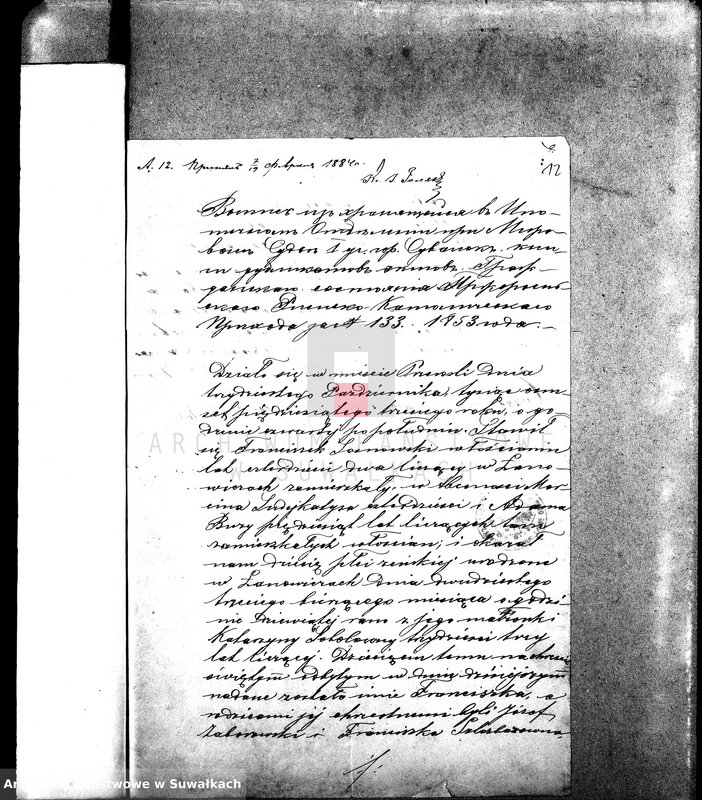 12
А. 12. Принят 7/19 февраля 1884 г.
Выпись из хранящейся в Ипо-
течном Отделении при Миро-
вом Судье 1 уч. гор. Сувалок кни-
ги дубликатов актов Граж-
данского состояния
Римско-Католического
Прихода за № 133. 1853 года.
Działo się w mieście Przerośli dnia
trzydziestego Października, tysiąc ośm-
set pięćdziesiątego trzeciego roku, o go-
dzinie czwartej po południu. Stawił
się Franciszek Sosnowski włościanin
lat czterdzieści dwa liczący w Łano-
wiczach zamieszkały, w obecności Mar-
cina czterdzieści i Adama
Bury pięćdziesiąt lat liczących tamże
zamieszkałych włościan; i okazał
nam dziecię płci żeńskiej urodzone
w Łanowiczach dnia dwudziestego
trzeciego bieżącego miesiąca o godzi-
nie dziewiątej rano z jego małżonki
Katarzyny Sokołowny trzydzieści trzy
lat liczącej. Dziecięciu temu na chrzcie
świętym odbytym w dniu dzisiejszym
nadane zostało imie Franciszka, a
rodzicami jej chrzestnemi byli Józef
Zaborowski i Franciszka
ARCHIWUM PAŃSTWOWE
W SUWAŁKACH
Archiwum Państwowe w Suwałkach